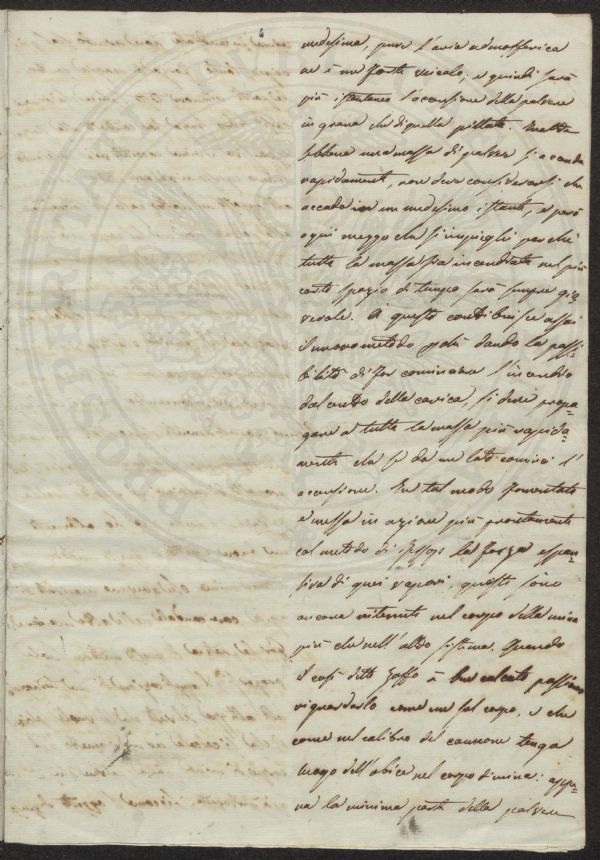 6
medesima, pure l'aria admosferica
ne è un forte veicolo, e quindi sarà
più istantanea l'accensione della polvere
in grana che di quella pistata. Inoltre
sebbene una massa di polvere si accenda
rapidamente, non deve considerarsi che
accada in un medesimo istante, e però
ogni mezzo che s'impieghi perchè
tutta la massa sia incendiata nel più
corto spazio di tempo sarà sempre gio-
vevole. A questo contribuisce assai
il nuovo metodo poichè dando la possi-
bilità di far cominciare l'incendio
dal centro della carica, si deve propa-
gare a tutta la massa più rapida-
mente che se da un lato cominci l'
accensione. In tal modo fomentata
e messa in azione più prontamente
col metodo di Jessop la forza espan-
siva di quei vapori, questi sono
ancora ritenuti nel corpo della mina
più che nell'altro sistema. Quando
il così detto zaffo è ben calcato possiamo
riguardarlo come un sol corpo, e che
come nel calibro del cannone tenga
luogo dell'obice nel corpo di mina: appe-
na la minima parte della polvere